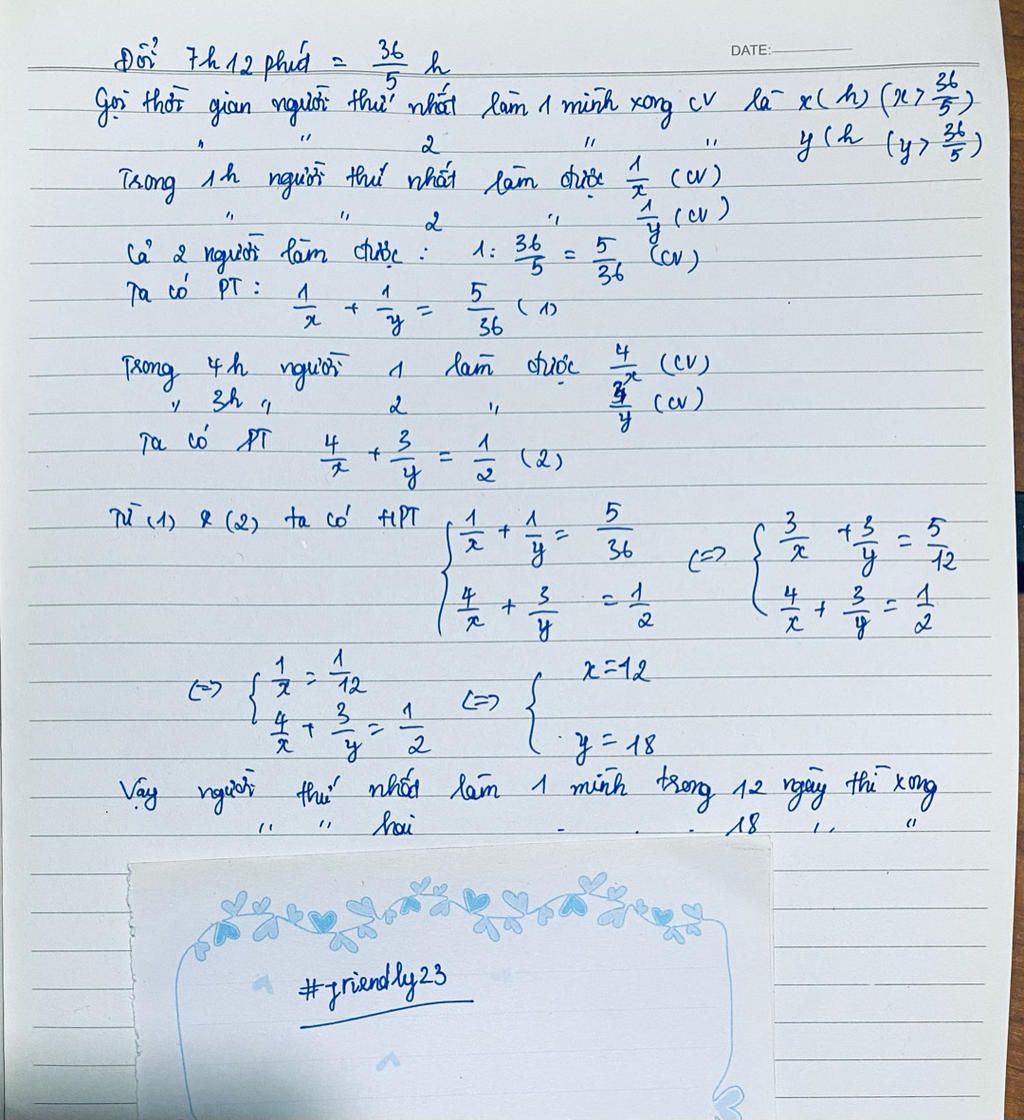 DATE:
Đổi 7h12 phút = 36/5 h
Gọi thời gian người thứ nhất làm 1 mình xong cv là x(h) (x > 36/5)
" " 2 " " y(h (y > 36/5)
Trong 1h người thứ nhất làm được 1/x (cv)
" " 2 " 1/y (cv)
Cả 2 người làm được : 1 : 36/5 = 5/36 (cv)
Ta có PT : 1/x + 1/y = 5/36 (1)
Trong 4h người 1 làm được 4/x (cv)
" 3h " 2 " 3/y (cv)
Ta có PT 4/x + 3/y = 1/2 (2)
Từ (1) & (2) ta có HPT { 1/x + 1/y = 5/36 <=> { 3/x + 3/y = 5/12
4/x + 3/y = 1/2 4/x + 3/y = 1/2
<=> { 1/x = 1/12 <=> { x = 12
4/x + 3/y = 1/2 y = 18
Vậy người thứ nhất làm 1 mình trong 12 ngày thì xong
" " hai - - - 18 " "
#friendly23